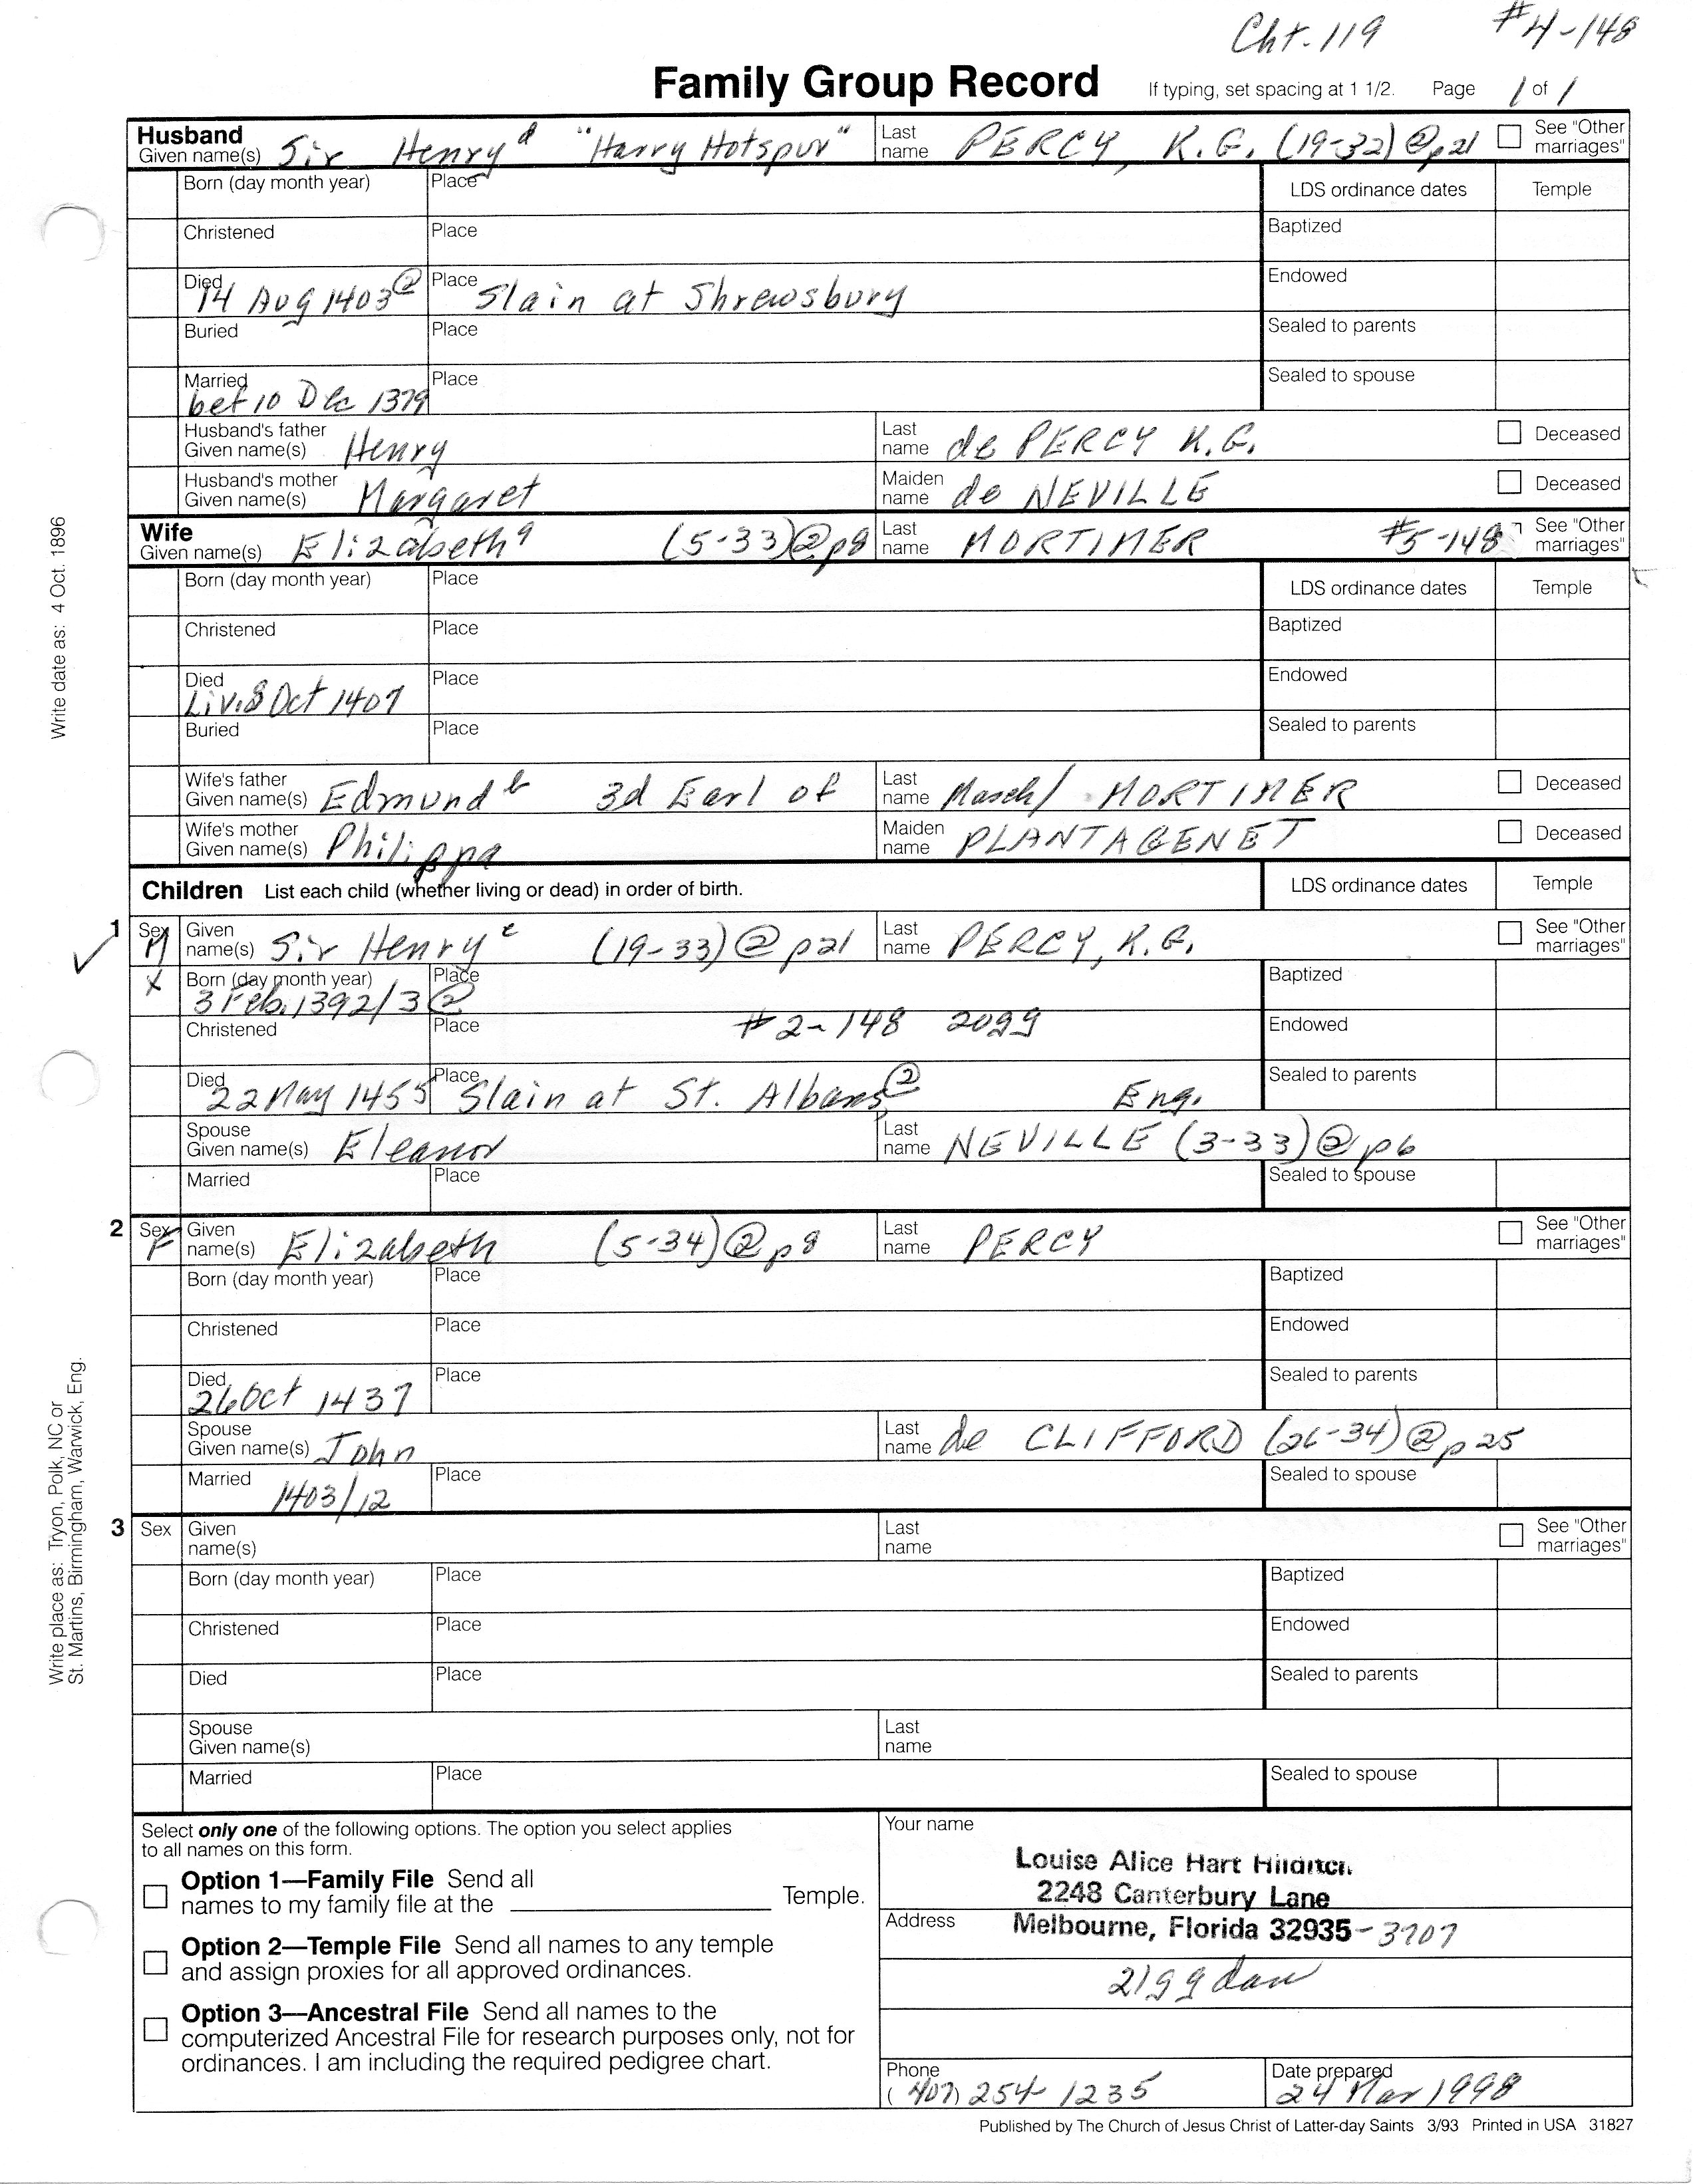 Cht. 119 #4-148
Family Group Record If typing, set spacing at 1 1/2. Page 1 of 1
Husband
Given name(s) Sir Henry d "Harry Hotspur" Last name PERCY, K.G. (19-32) @ p21 See "Other marriages"
Born (day month year) Place LDS ordinance dates Temple
Christened Place Baptized
Died 14 Aug 1403 @ Place Slain at Shrewsbury Endowed
Buried Place Sealed to parents
Married bef 10 Dec 1379 Place Sealed to spouse
Husband's father Given name(s) Henry Last name de PERCY K.G. Deceased
Husband's mother Given name(s) Margaret Maiden name de NEVILLE Deceased
Wife
Given name(s) Elizabeth 9 (5-33) @ p8 Last name MORTIMER #5-148 See "Other marriages"
Born (day month year) Place LDS ordinance dates Temple
Christened Place Baptized
Died Liv. 8 Oct 1407 Place Endowed
Buried Place Sealed to parents
Wife's father Given name(s) Edmund b 3d Earl of Last name March/ MORTIMER Deceased
Wife's mother Given name(s) Philippa Maiden name PLANTAGENET Deceased
Children List each child (whether living or dead) in order of birth. LDS ordinance dates Temple
1 Sex M Given name(s) Sir Henry c (19-33) @ p21 Last name PERCY, K.G. See "Other marriages"
X Born (day month year) 3 Feb. 1392/3 @ Place Baptized
Christened Place #2-148 2099 Endowed
Died 22 May 1455 Place Slain at St. Albans, @ Eng. Sealed to parents
Spouse Given name(s) Eleanor Last name NEVILLE (3-33) @ p6
Married Place Sealed to spouse
2 Sex F Given name(s) Elizabeth (5-34) @ p8 Last name PERCY See "Other marriages"
Born (day month year) Place Baptized
Christened Place Endowed
Died 26 Oct 1437 Place Sealed to parents
Spouse Given name(s) John Last name de CLIFFORD (26-34) @ p25
Married 1403/12 Place Sealed to spouse
3 Sex Given name(s) Last name See "Other marriages"
Born (day month year) Place Baptized
Christened Place Endowed
Died Place Sealed to parents
Spouse Given name(s) Last name
Married Place Sealed to spouse
Select only one of the following options. The option you select applies
to all names on this form.
Option 1—Family File Send all
names to my family file at the Temple.
Option 2—Temple File Send all names to any temple
and assign proxies for all approved ordinances.
Option 3—Ancestral File Send all names to the
computerized Ancestral File for research purposes only, not for
ordinances. I am including the required pedigree chart.
Your name
Louise Alice Hart Hilditch
2248 Canterbury Lane
Address Melbourne, Florida 32935-3707
21gg dau
Phone (407) 254-1235 Date prepared 24 Mar 1998
Published by The Church of Jesus Christ of Latter-day Saints 3/93 Printed in USA 31827
Write date as: 4 Oct. 1896
Write place as: Tryon, Polk, NC or
St. Martins, Birmingham, Warwick, Eng.